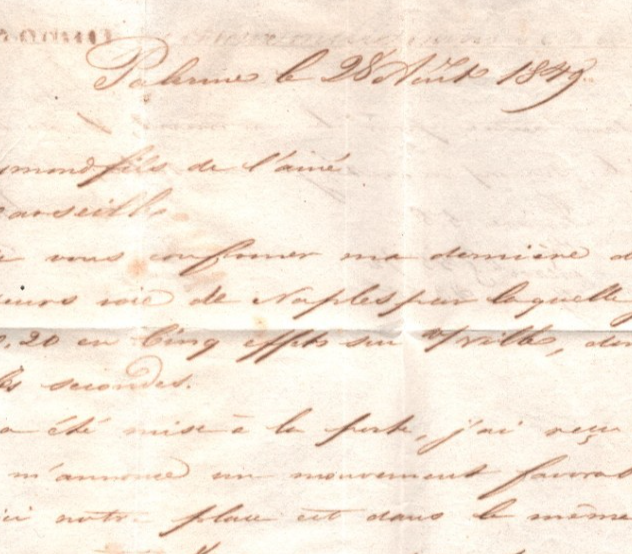 Palerme le 28 Août 1849.
fils de l'ainé
vous confirmer ma dernière
voie de Naples par laquelle
20 en Cinq effets sur v/ville,
secondes.
a été mise à la poste, j'ai reçu
m'annonce un mouvement
notre place est dans le même